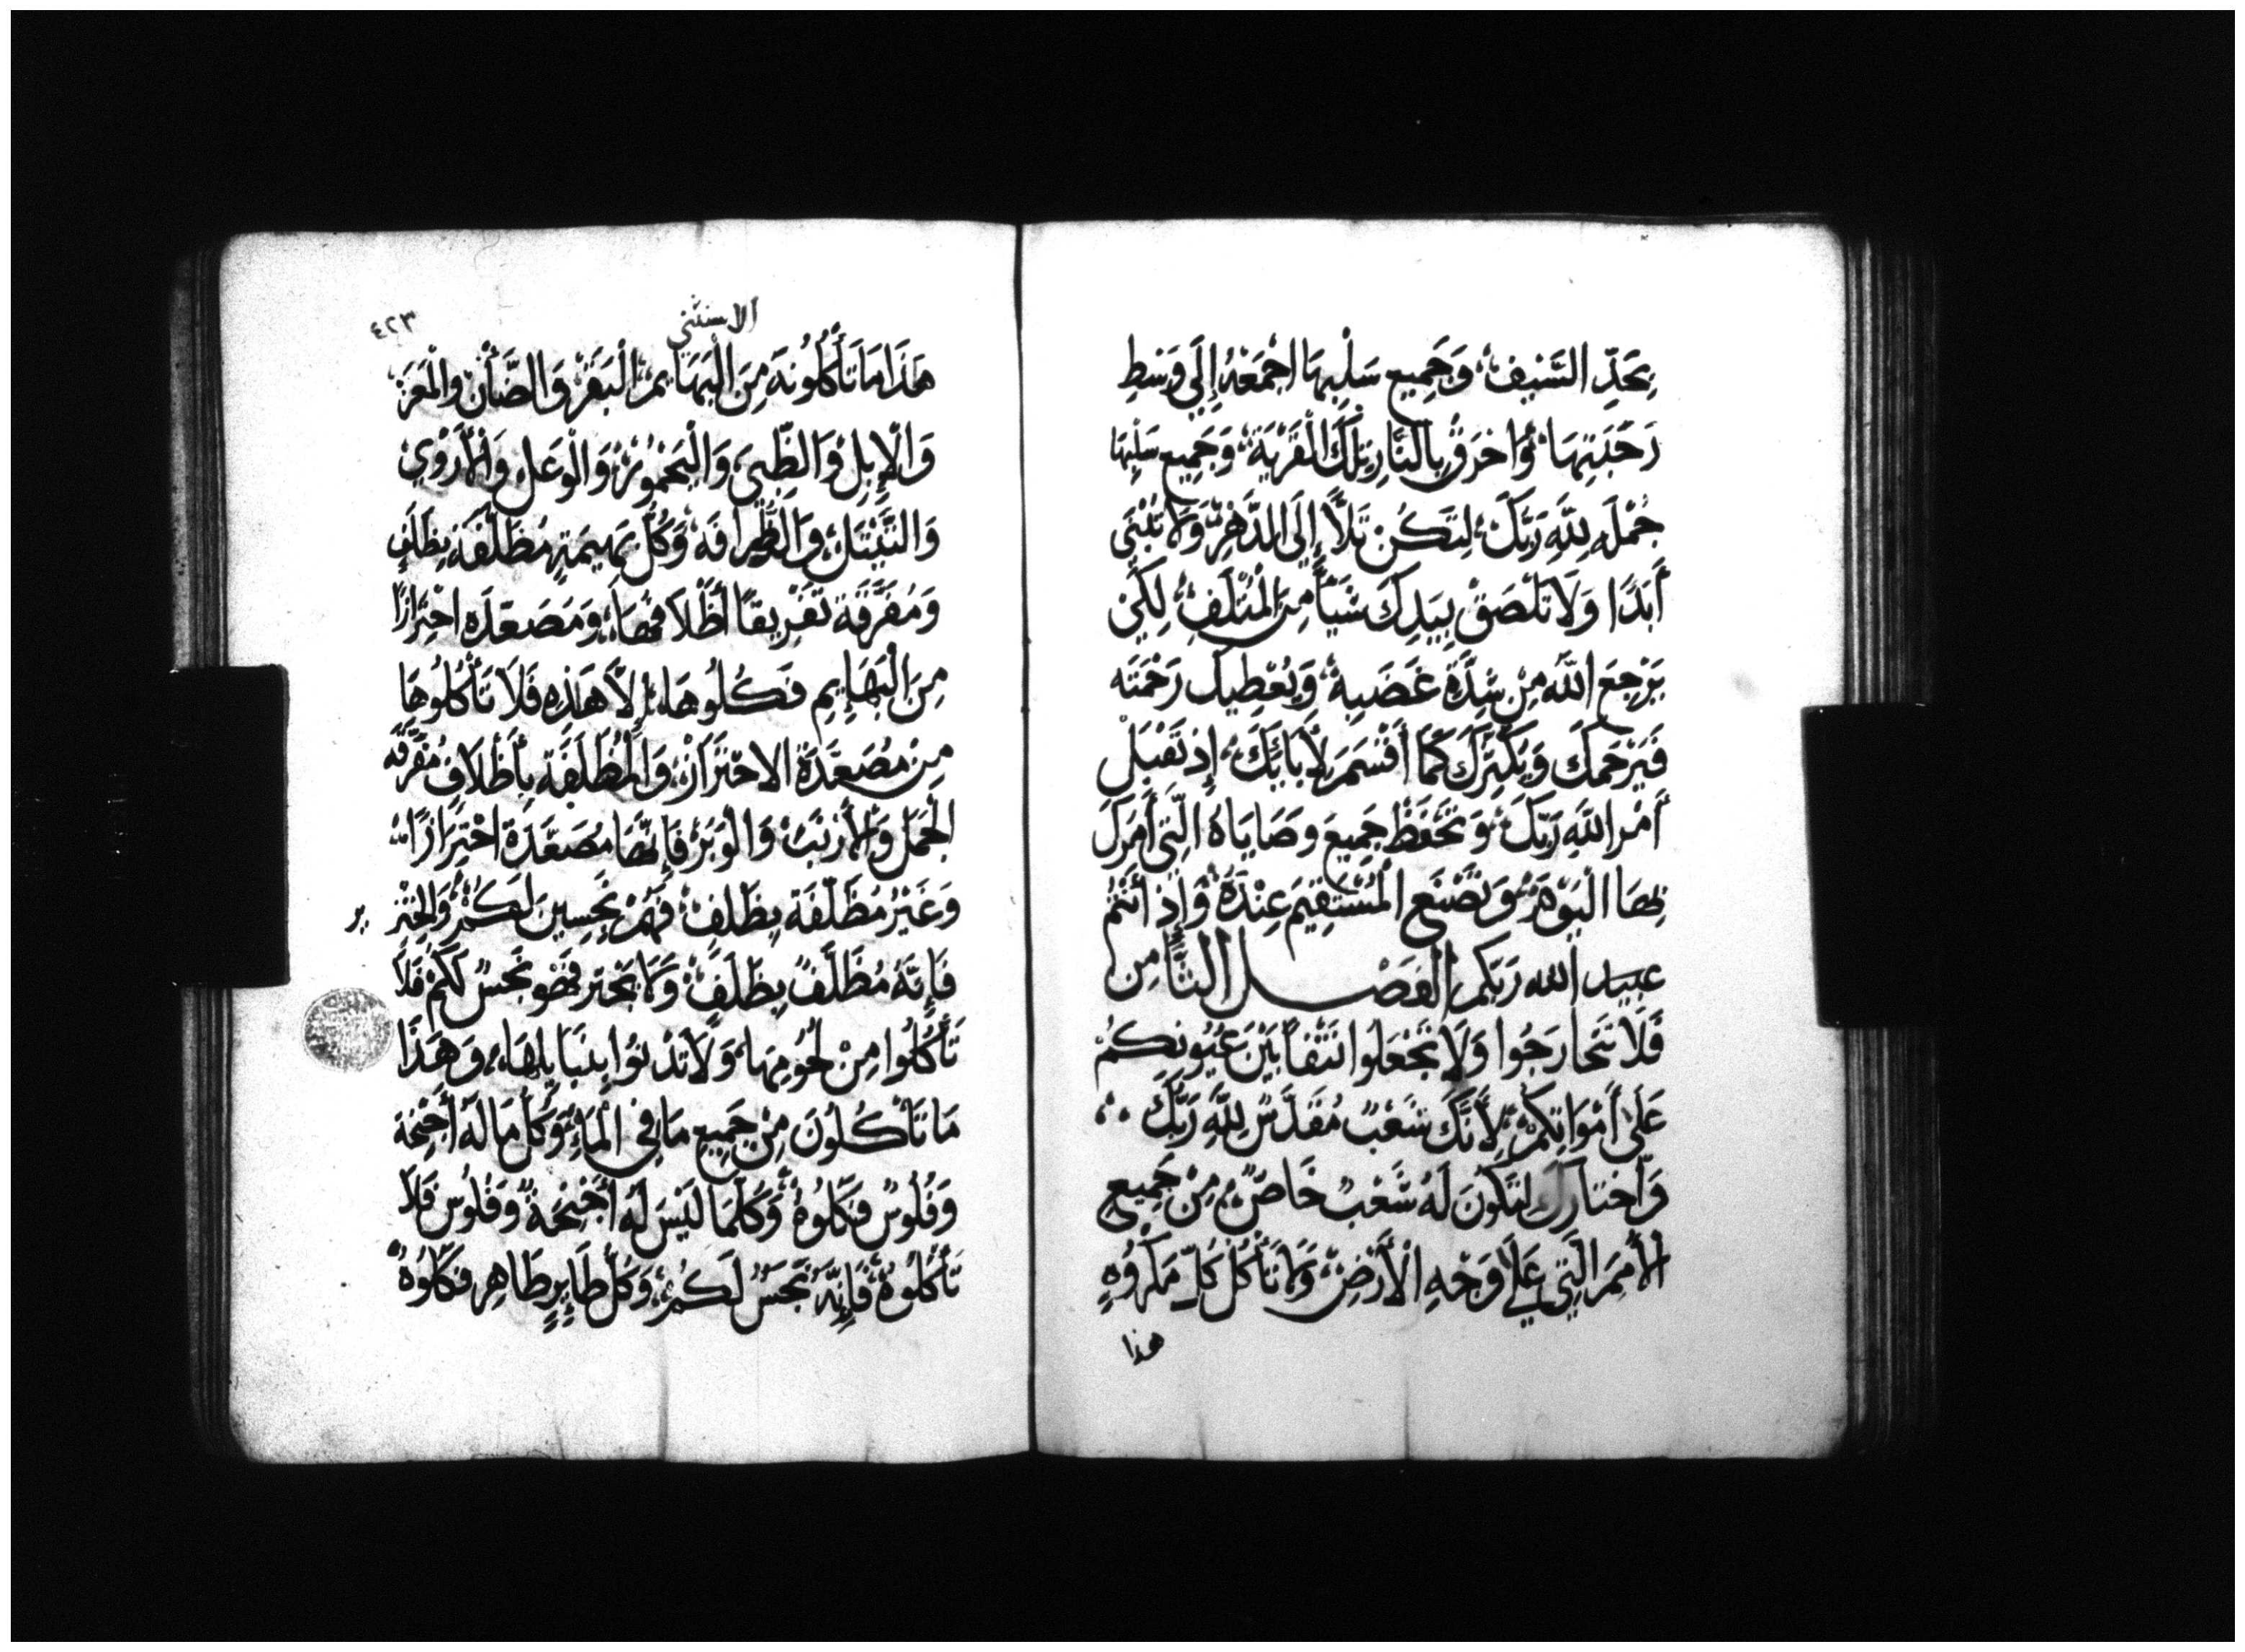 بِحَدِّ السَّيْفِ، وَجَمِيعِ سَلْبِهَا اجْمَعْهُ إِلَى وَسَطِ
رَحْبَتِهَا، وَاحْرَقْ بِالنَّارِ تِلْكَ الْقَرْيَةَ، وَجَمِيع سَلْبِهَا
جُمْلَه لِلَّهِ رَبَّكَ، لِتَكُنْ تَلًّا إِلَى الدَّهْرِ، وَلَا تُبْنَى
أَبَدًا وَلَا تَلْصَقْ بِيَدِكَ شَيْأً مِنَ الْمُتْلَفِ، لِكَيْ
يَرْجِعَ اللَّه مِنْ شِدَّةِ غَضَبِهِ، وَيُعْطِيكَ رَحْمَتَه
فَيَرْحَمَكَ وَيُكَثِّرَكَ كَمَا أَقْسَمَ لِأَبَائِكَ، إِذ تَقْبَل
أَمْرَ اللَّهِ رَبِّكَ، وَتَحْفَظْ جَمِيعَ وَصَايَاهُ الَّتِي أَمَرَكَ
بِهَا الْيَوْمَ، وَتَصْنَع الْمُسْتَقِيمَ عِنْدَهُ، وَإِذ أَنْتُمْ
عبيد الله رَبّكم الْفَصْل الثَّامِن
فَلَا تَتَجَارَحُوا وَلَا تَجْعَلُوا نَتْفًا بَيْنَ عُيُونِكُمْ
عَلَى أَمْوَاتِكُمْ، لِأَنَّكَ شَعْبٌ مُقَدَّسٌ لِلَّهِ رَبِّكَ
وَاخْتَارَكَ لِتَكُونَ لَهُ شَعْبٌ خَاصٌّ، مِنْ جَمِيعِ
الْأُمَمِ الَّتِي عَلَى وَجْهِ الْأَرْضِ، وَلَا تَأْكُلْ كُلّ مَكْرُوهٍ
هذا
الاستثني
٤٢٣
هَذَا مَا تَأْكُلُونَهُ مِنَ الْبَهَايِمِ، الْبَقَرْ وَالضَّأْنْ وَالْمَعَزْ
وَالْإِبِلْ وَالظَّبِيَ وَالْيَحْمُورْ، وَالْوَعَلْ وَالْأَرْوِي
وَالتَّيْتَلْ، وَالظُّرَافَه، وَكُلّ بَهِيمَةٍ مُظَلَّفَه بِظِلْفٍ
وَمُفَرَّقَة تَفْرِيقًا أَظْلَافهَا، وَمَصَعّدَه اجْتِرَارًا
مِنَ الْبَهَايِمِ فَكُلُوهَا، إِلَّا هَذِهِ فَلَا تَأْكُلُوهَا
مِنْ مُصَعَّدَةِ الاجْتِرَارْ، وَالْمُظَلَّفَة بِأَظْلَافٍ مُفَرَّقَه
الْجَمَلْ وَالْأَرْنَبْ وَالْوَبَرْ فَإِنَّهَا مُصَعَّدَة اجْتِرَارًا،
وَغَيْرُ مُظَلَّفَة بِظِلْفٍ، فَهُمْ نَجِسِينَ لَكُمْ، وَالْخِنْز
ير
فَإِنَّهُ مُظَلَّفٌ بِظِلْفٍ، وَلَا يَجْتَر فَهُو نَجِسٌ لَكُمْ فَلَا
تَأْكُلُوا مِنْ لُحُومِهَا، وَلَا تَدْنُوا بِنَبَايِلِهَا، وَهَذَا
مَا تَأْكُلُونَ مِنْ جَمِيعِ مَا فِي الْمَاءِ، وَكُلّ مَا لَهُ أَجْنِحَة
وَفُلُوسٌ فَكُلُوهُ، وَكُلّمَا لَيْسَ لَهُ أَجْنِحَةٌ وَفُلُوس فَلَا
تَأْكُلُوهُ، فَإِنَّهُ نَجَسٌ لَكُمْ، وَكُلّ طَايِرٍ طَاهِرٍ فَكُلُوهُ